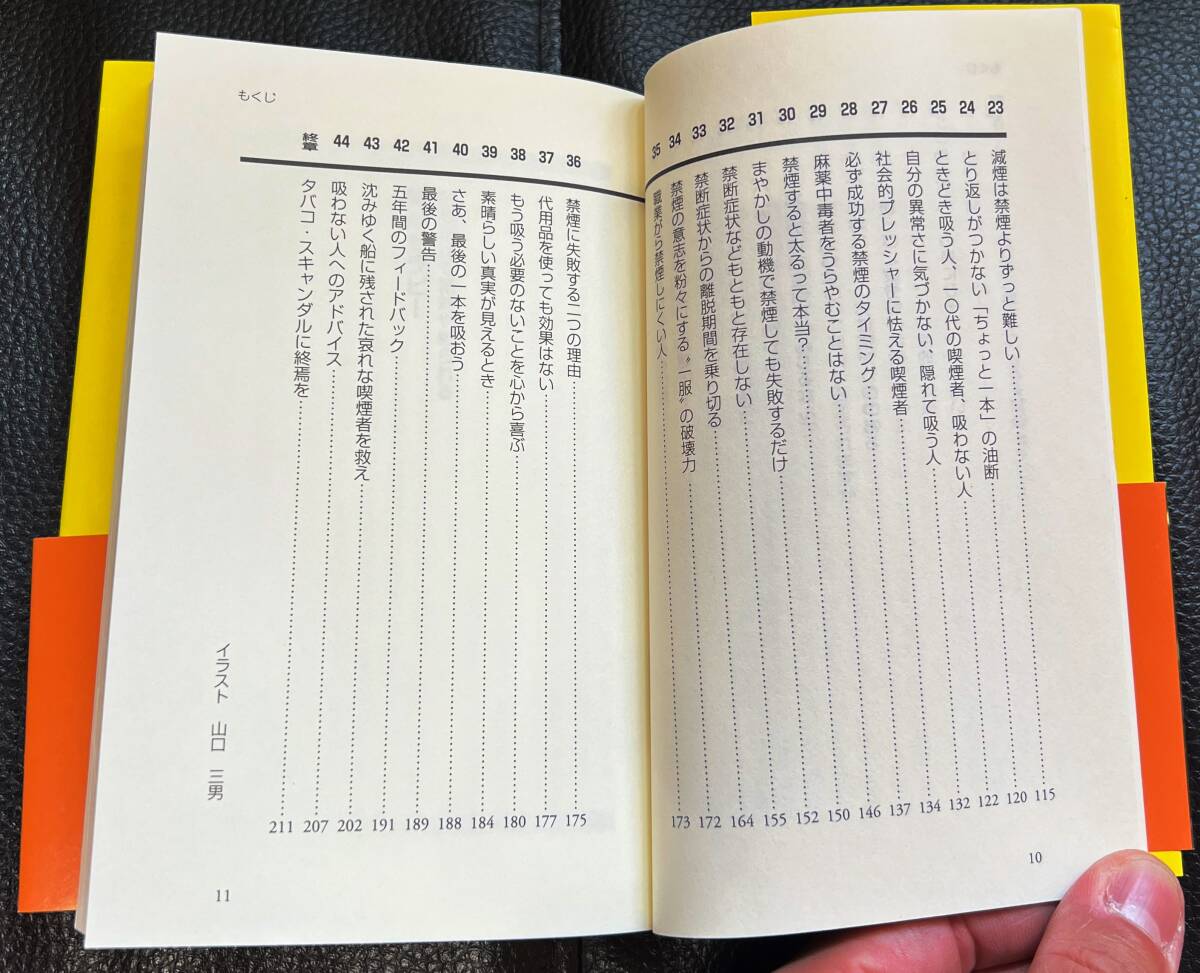 23 減煙は禁煙よりずっと難しい……115
24 とり返しがつかない「ちょっと一本」の油断……120
25 ときどき吸う人、一〇代の喫煙者、吸わない人……122
26 自分の異常さに気づかない、隠れて吸う人……132
27 社会的プレッシャーに怯える喫煙者……134
28 必ず成功する禁煙のタイミング……137
29 麻薬中毒者をうらやむことはない……146
30 禁煙すると太るって本当？……150
31 まやかしの動機で禁煙しても失敗するだけ……152
32 禁断症状などもともと存在しない……155
33 禁断症状からの離脱期間を乗り切る……164
34 禁煙の意志を粉々にする〝一服〟の破壊力……172
35 職業がら禁煙しにくい人……173
10
もくじ
36 禁煙に失敗する二つの理由……175
37 代用品を使っても効果はない……177
38 もう吸う必要のないことを心から喜ぶ……180
39 素晴らしい真実が見えるとき……184
40 さあ、最後の一本を吸おう……188
41 最後の警告……189
42 五年間のフィードバック……191
43 沈みゆく船に残された哀れな喫煙者を救え……202
44 吸わない人へのアドバイス……207
終章 タバコ・スキャンダルに終焉を……211
イラスト 山口 三男
11